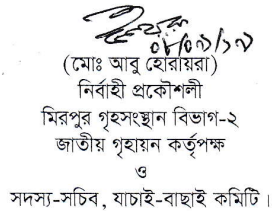 ০৮/০৭/১৭
(মোঃ আবু হোরায়রা)
নির্বাহী প্রকৌশলী
মিরপুর গৃহসংস্থান বিভাগ-২
জাতীয় গৃহায়ন কর্তৃপক্ষ
ও
সদস্য-সচিব, যাচাই-বাছাই কমিটি।